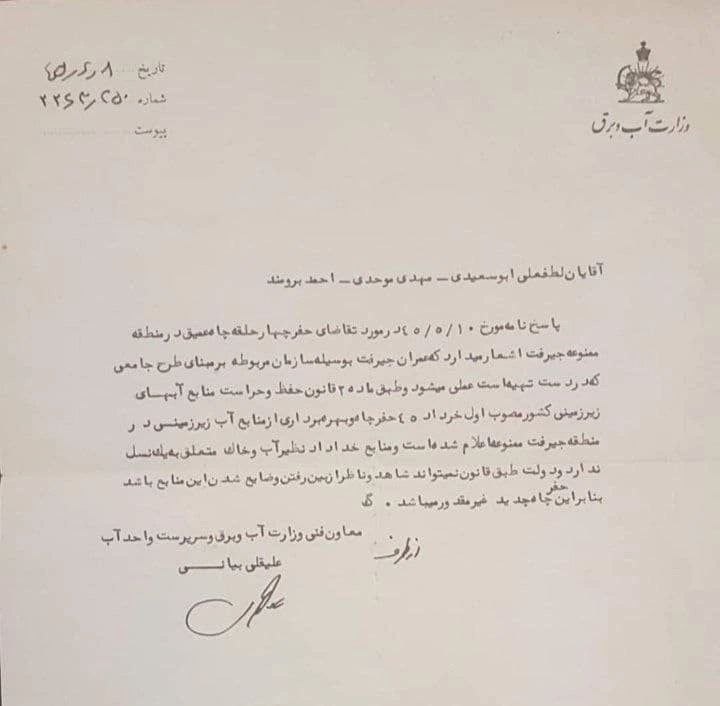 وزارت آب و برق
تاریخ
شماره
پیوست
آقایان لطفعلی ابوسعیدی ــ مهدی موحدی ــ احمد برومند
پاسخ نامه مورخ ۴۵/۵/۱۰ در مورد تقاضای حفر چهار حلقه چاه عمیق در منطقه
ممنوعه جیرفت اشعار میدارد که عمران جیرفت بوسیله سازمان مربوطه برمبنای طرح جامعی
که در دست تهیه است عملی میشود و طبق ماده ۲۵ قانون حفظ و حراست منابع آبهای
زیرزمینی کشور مصوب اول خرداد ۴۵ حفر چاه و بهره برداری از منابع آب زیرزمینی در
منطقه جیرفت ممنوعه اعلام شده است و منابع خداداد نظیر آب و خاك متعلق به یك نسل
ندارد و دولت طبق قانون نمیتواند شاهد و ناظر از بین رفتن و ضایع شدن این منابع باشد
بنابراین حفر چاه جدید غیر مقدور میباشد .
معاون فنی وزارت آب و برق و سرپرست واحد آب
از طرف
علیقلی بیانی